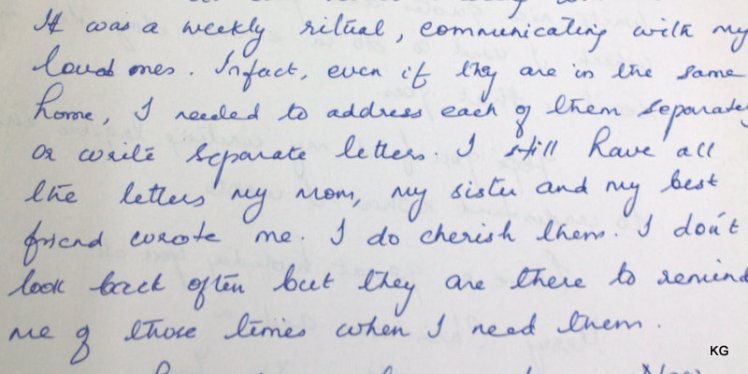 It was a weekly ritual, communicating with my
loved ones. Infact, even if they are in the same
home, I needed to address each of them separately
or write separate letters. I still have all
the letters my mom, my sister and my best
friend wrote me. I do cherish them. I don't
look back often but they are there to remind
me of those times when I need them.
KG